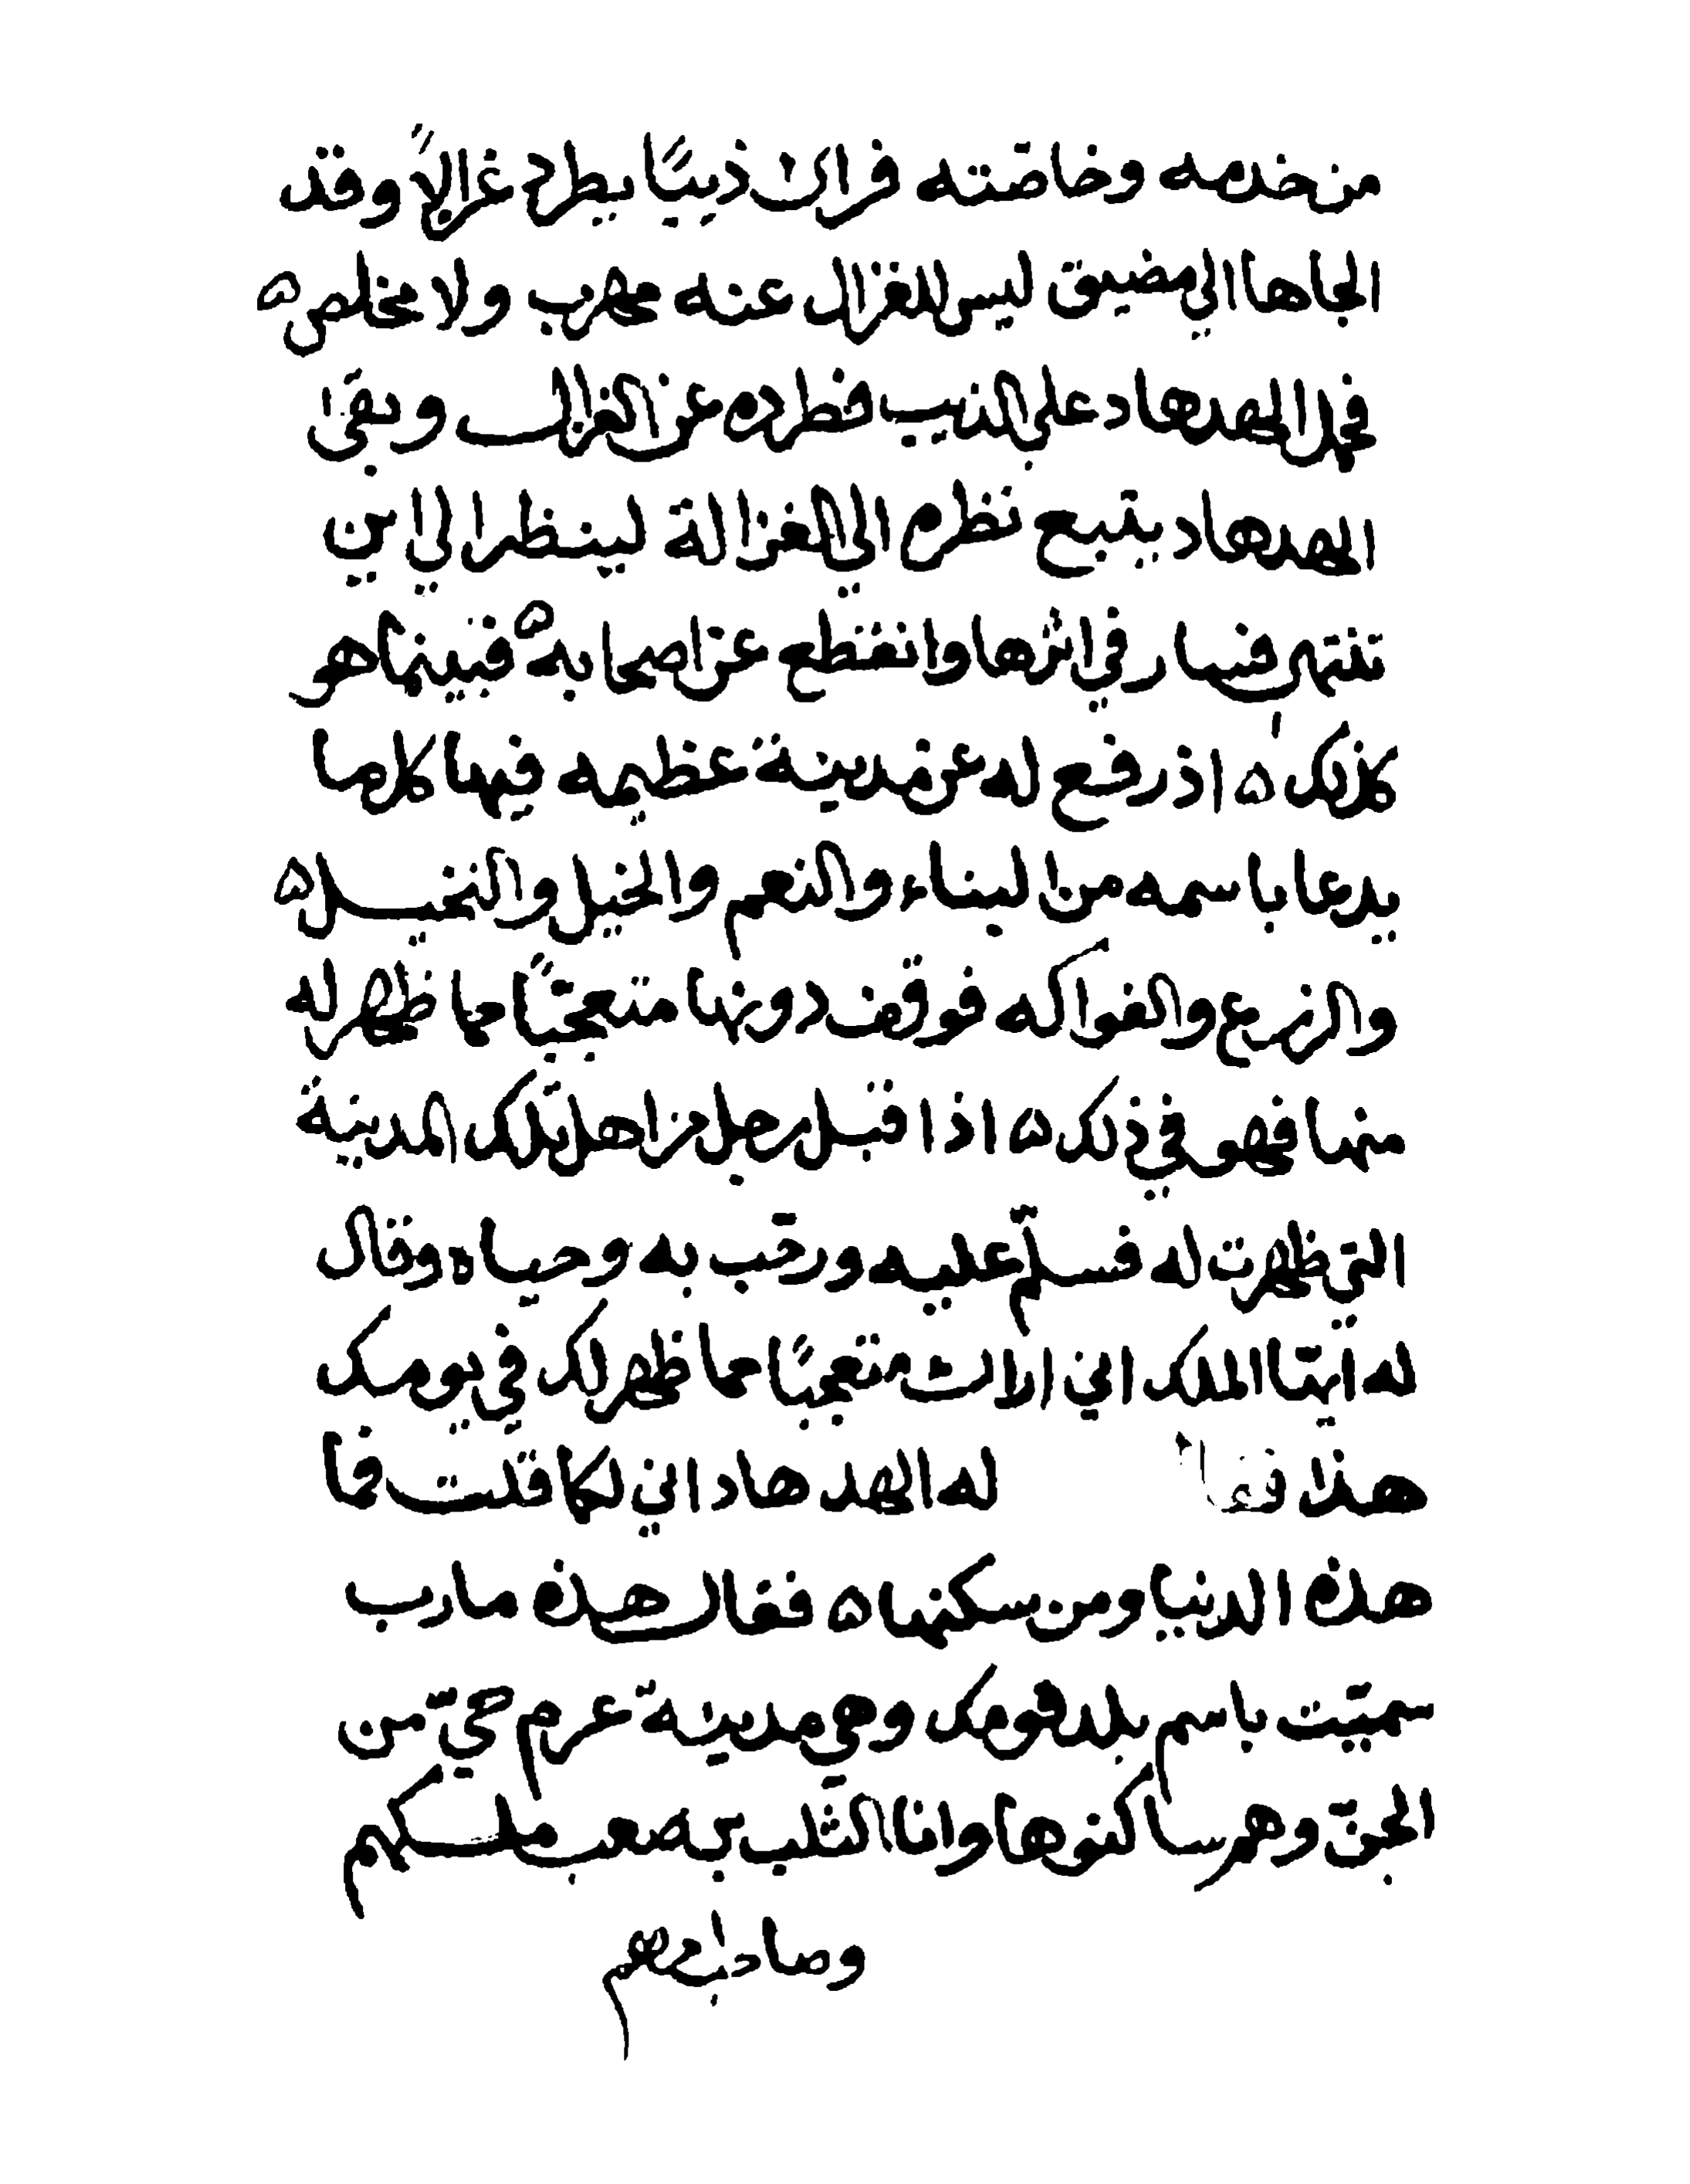 من خدمه وخاصّته فراى ذيبًا يطرد غزالاً وقد
الجاها الي مضيق ليس للغزال عنه مهرب ولا مخلص ه
فحمل الهدهاد علي الذيب فطرده عن الغزال وبقى
الهدهاد يتبع نظره الي الغزالة لينظر الي اين
تنتهي فسار في اثرها وانقطع عن اصحابه ه فبينما هو
كذلك ه اذ رفع له عن مدينة عظيمه فيها كل ما
يدعا باسمه من البناء والنعم والخيل والنخيل ه
والزرع والفواكه فوقف دونها متعجّبًا مما ظهر له
منها فهو في ذلك ه اذا اقبل رجل من اهل تلك المدينة
التي ظهرت له فسلّم عليه ورحّب به وحياه وقال
له ايّها الملك اني اراك متعجّبًا مما ظهر لك في يومك
هذا فقال له الهدهاد اني لكما قلت فما
هذه الدنيا ومن سكنها ه فقال هذه مارب
سميّت باسم بلد قومك وهي مدينة عرم حيّ من
الجنّ وهم ساكنوها وانا بن صعب ملكهم
وصاحب امرهم